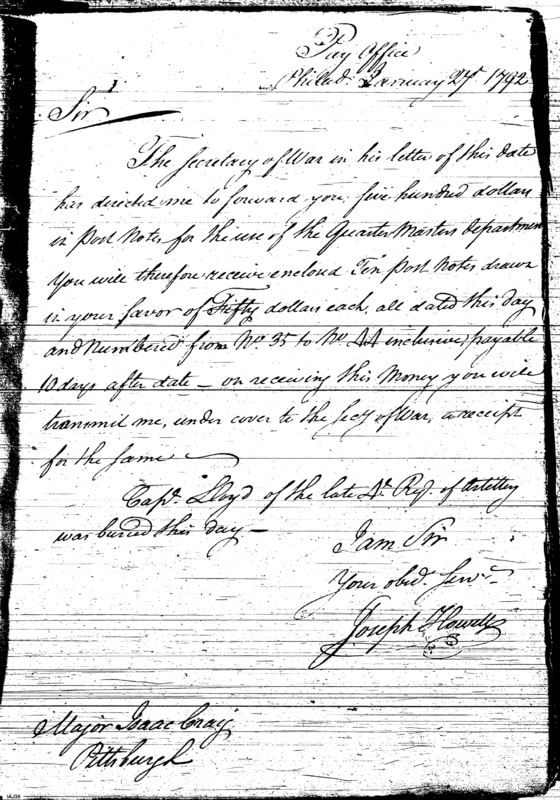 Pay Office
Philad. January 27th 1792
Sir
The Secretary of War in his letter of this date
has directed me to forward you, five hundred dollars
in Post Notes for the use of the Quarter Masters department
You will therefore receive enclosed Ten Post Notes drawn
in your favor of Fifty dollars each, all dated this day
and Numbered from No. 35 to No. 44 inclusive, payable
10 days after date — on receiving this Money you will
transmit me, under cover to the Secy of War, a receipt
for the same
Capt. Lloyd of the late Regt. of Artillery
was buried this day —
I am Sir
Your obedt. Servt.
Joseph Howell
Major Isaac Craig
Pittsburgh